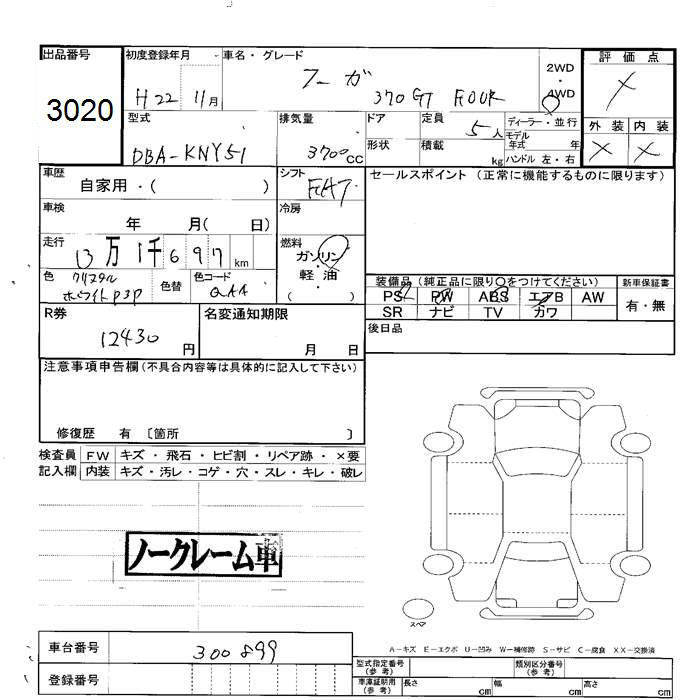 出品番号
3020
初度登録年月
H 22 11月
車名・グレード
フーガ 370GT FOUR
2WD
・
4WD
評価点
X
外装 内装
X X
型式
DBA-KNY51
排気量
3700cc
ドア
形状
定員
5人
積載
kg
ディーラー・並行
モデル年式 年
ハンドル 左・右
車歴
自家用・( )
シフト
FAT
セールスポイント (正常に機能するものに限ります)
車検
年 月( 日)
冷房
走行
13万1千697km
燃料
ガソリン
・
軽油
( )
色
クリスタルホワイトP3P
色替
色コード
QAA
装備品 (純正品に限り〇をつけてください)
PS PW ABS エアB AW
SR ナビ TV カワ
新車保証書
有・無
R券
12430円
名変通知期限
月 日
後日品
注意事項申告欄(不具合内容等は具体的に記入して下さい)
修復歴 有 〔箇所 〕
検査員 FW キズ・飛石・ヒビ割・リペア跡・×要
記入欄 内装 キズ・汚レ・コゲ・穴・スレ・キレ・破レ
ノークレーム車
スペア
A-キズ E-エクボ U-凹み W-補修跡 S-サビ C-腐食 XX-交換済
車台番号
300899
登録番号
型式指定番号
(参考)
類別区分番号
(参考)
車庫証明用
(参考)
長さ cm
幅 cm
高さ cm